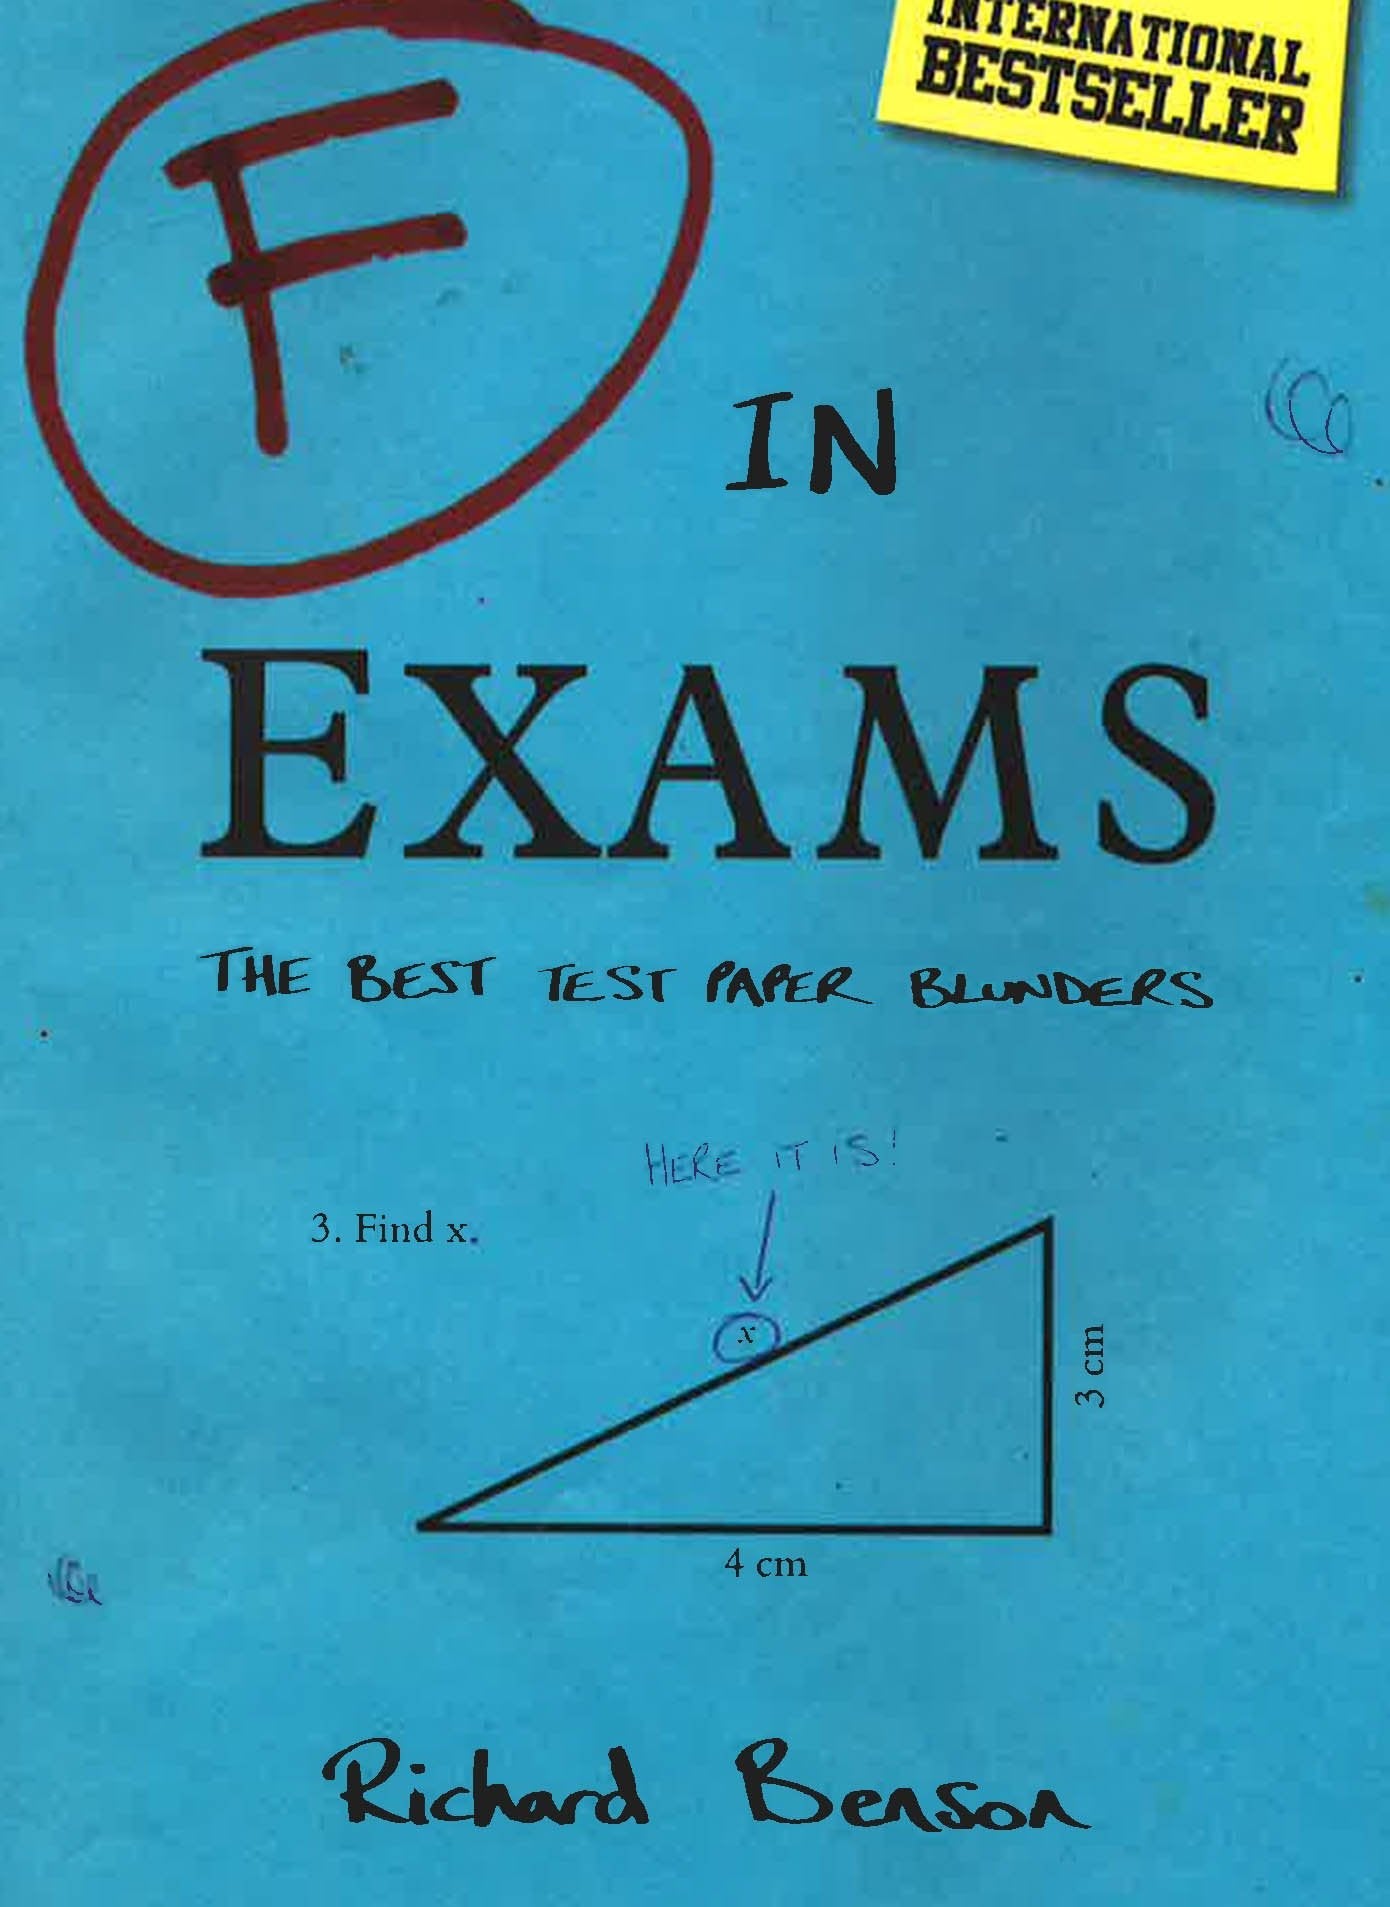 INTERNATIONAL
BESTSELLER
F
IN
EXAMS
THE BEST TEST PAPER BLUNDERS
HERE IT IS!
3. Find x.
x
3 cm
4 cm
Richard Benson